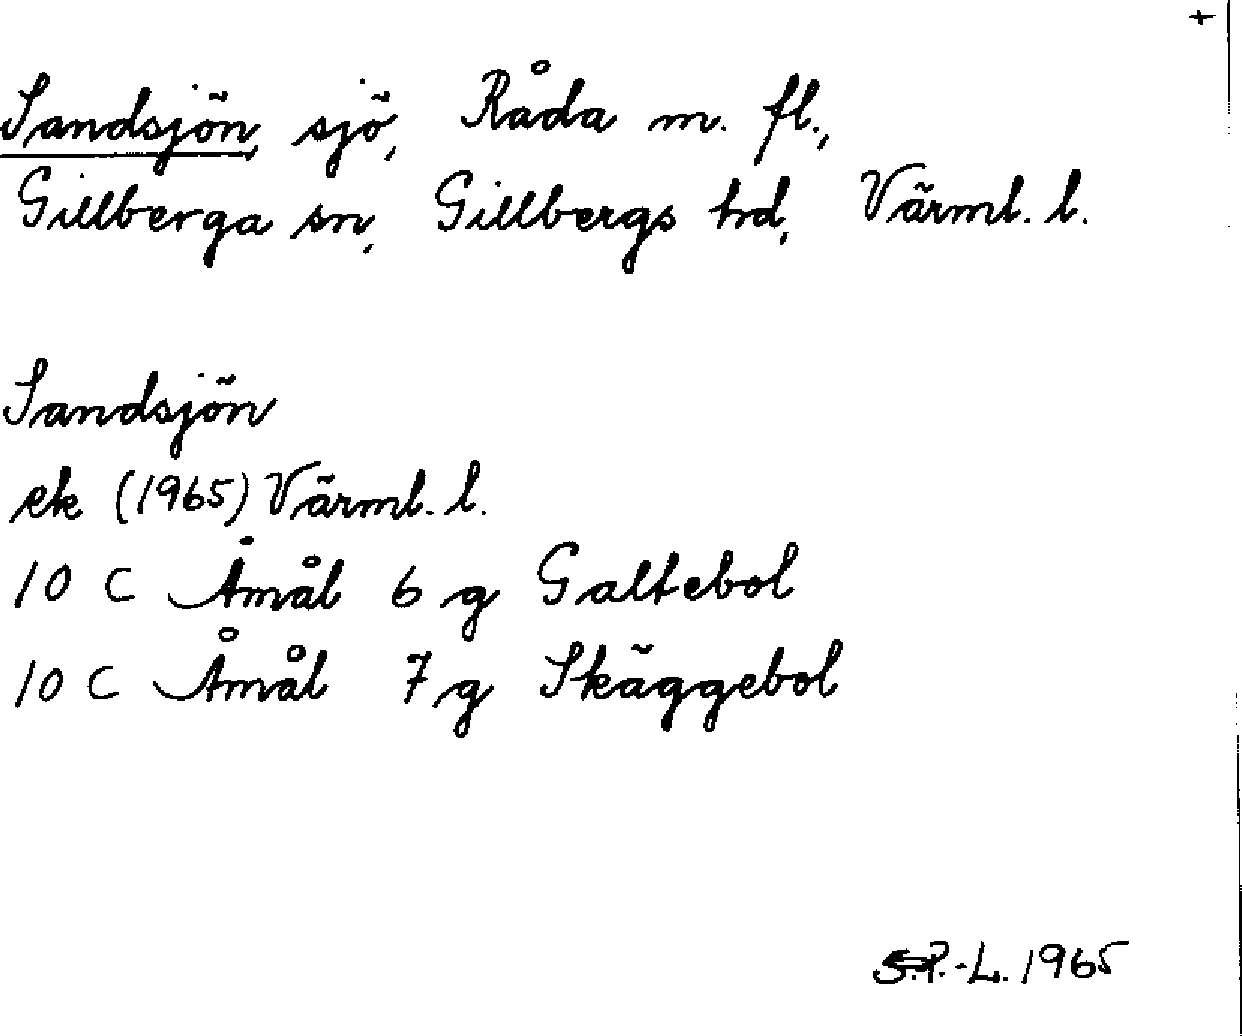 +
Sandsjön, sjö, Råda m. fl.,
Gillberga sn, Gillbergs hd, Värml. l.
Sandsjön
ek (1965) Värml. l.
10 C Åmål 6 g Galtebol
10 C Åmål 7 g Skäggebol
S.P.-L. 1965